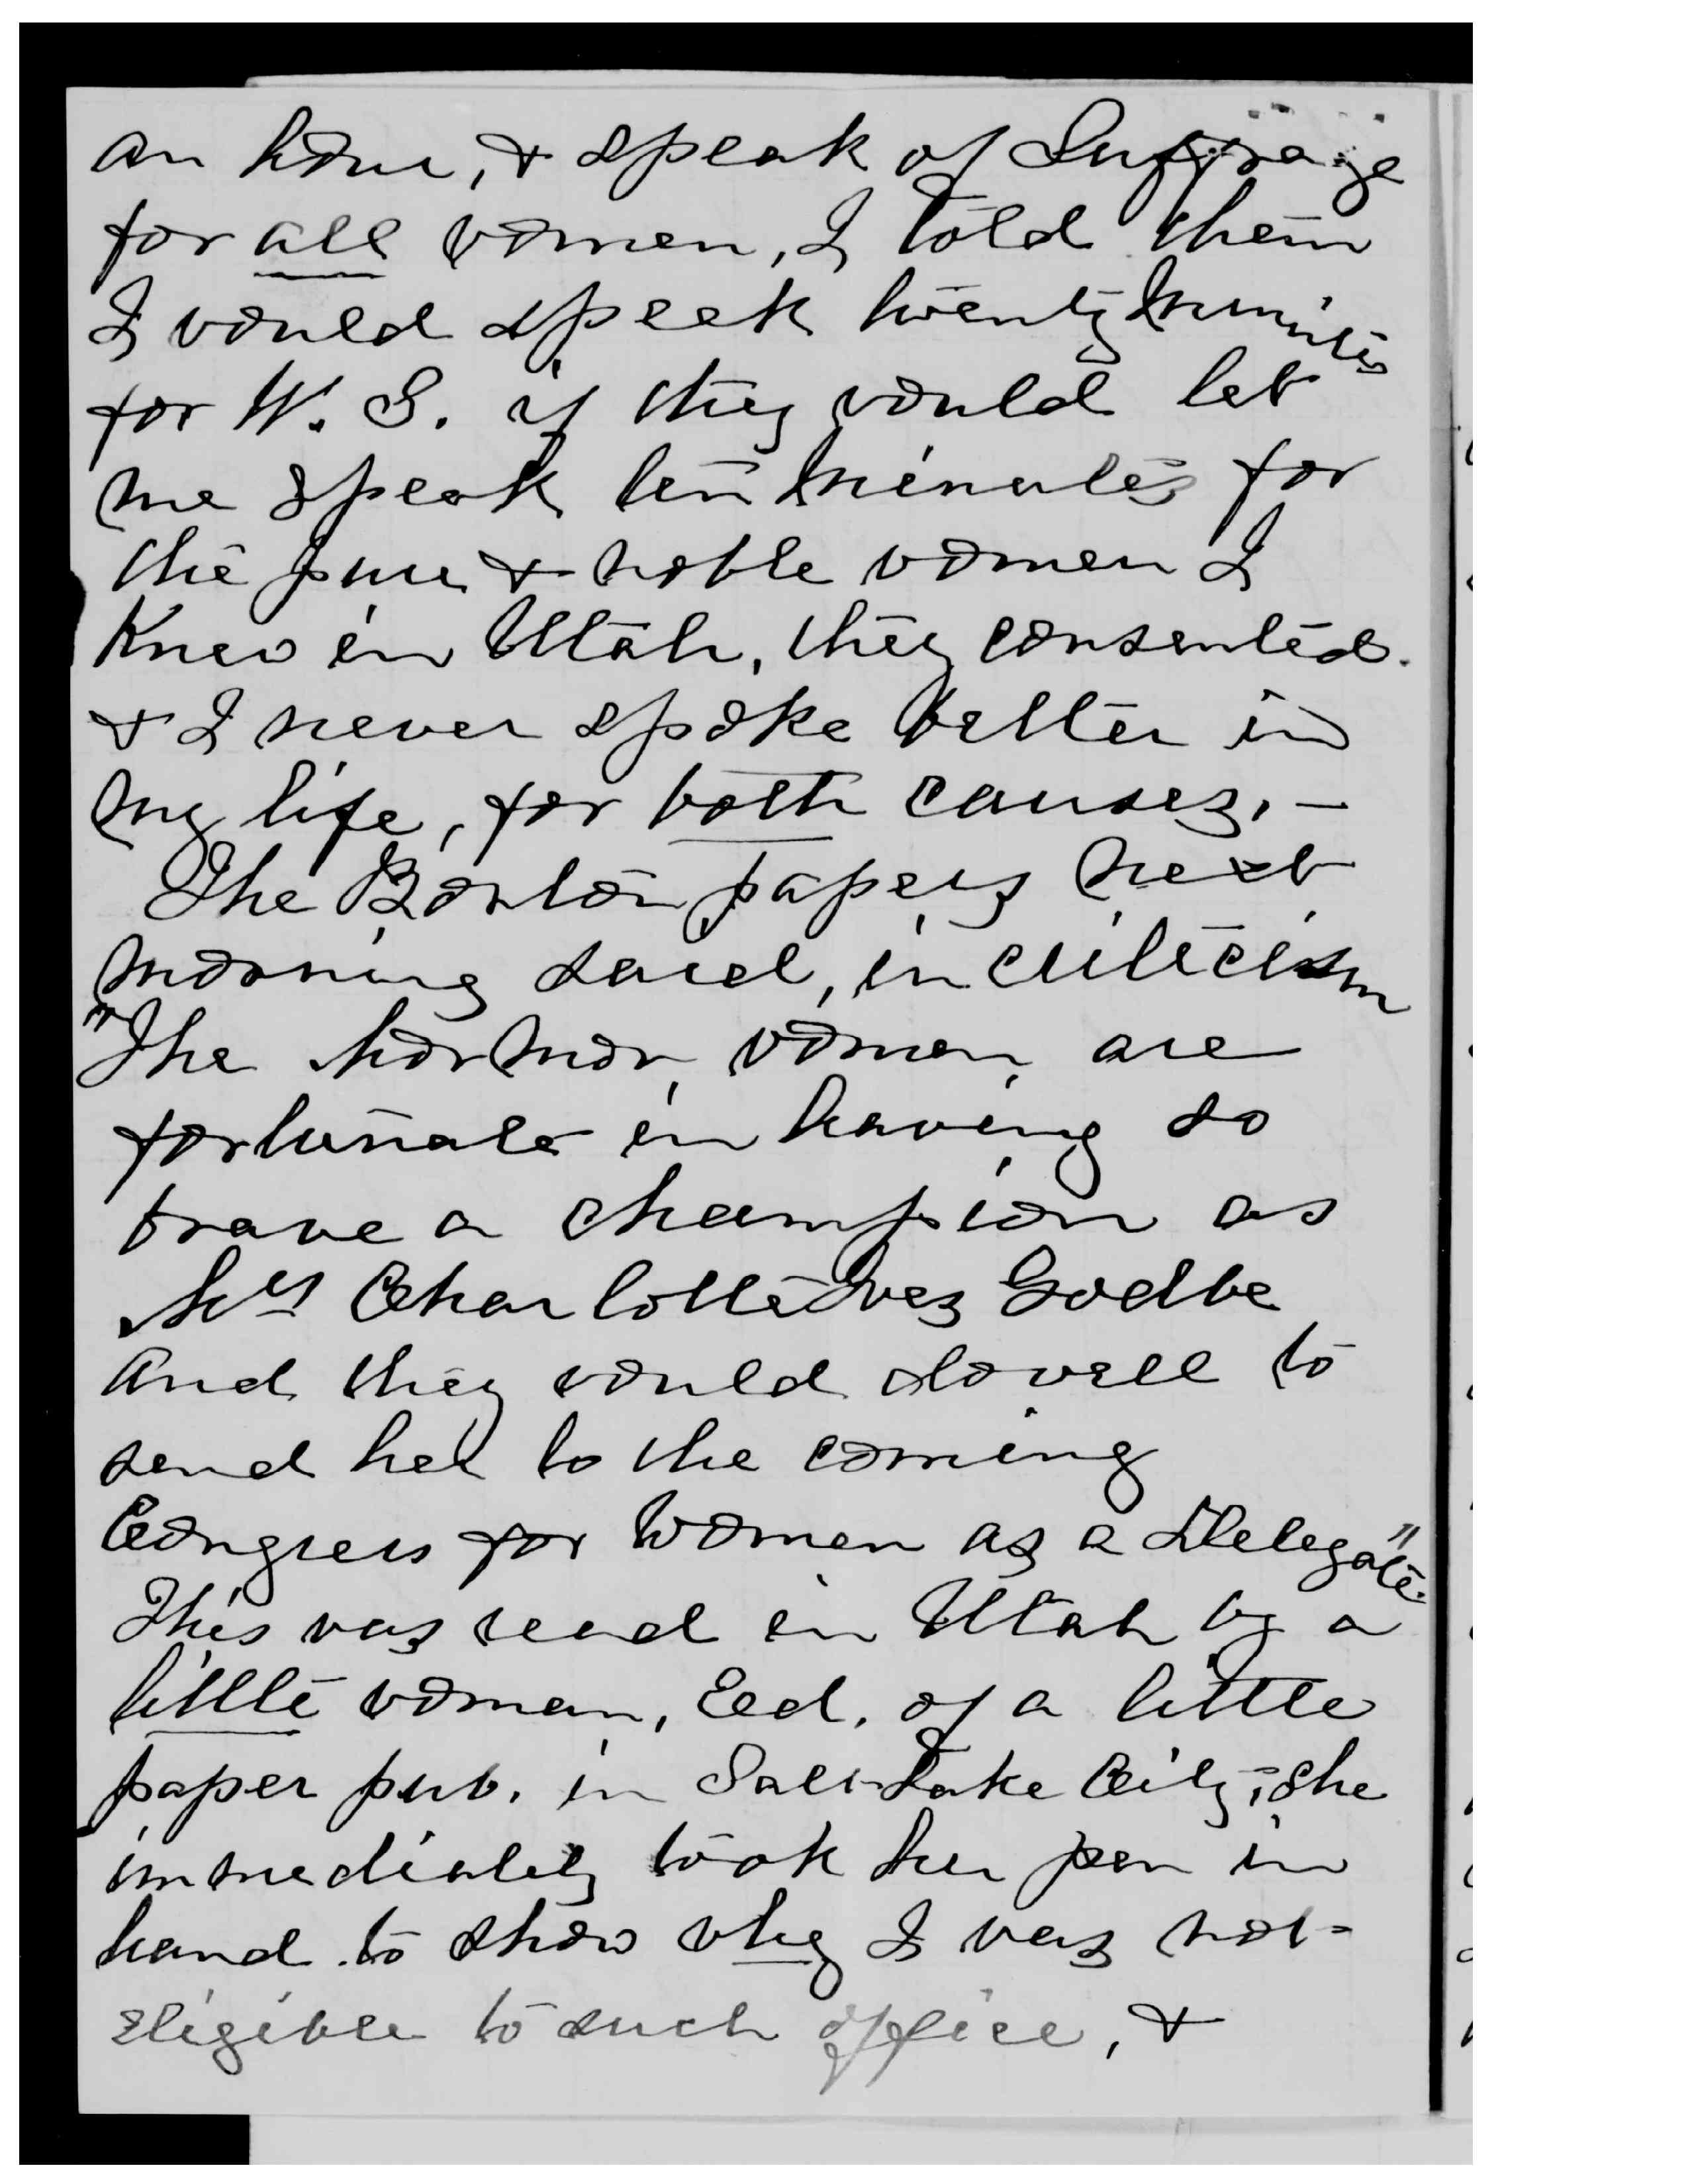 an hour, & speak of Suffrage
for all women, I told them
I would speak twenty minutes
for W. S. if they would let
me speak ten minutes for
the pure & noble women I
Knew in Utah, they consented.
& I never spoke better in
my life, for both causes, —
The Boston papers next
morning said, in criticism
"The Mormon women are
fortunate in having so
brave a champion as
Mrs Charlotte Ives Godbe
and they would do well to
send her to the coming
Congress for Women as a Delegate."
This was read in Utah by a
little woman, Ed. of a little
paper pub. in Salt Lake City, she
immediately took her pen in
hand to show why I was not
eligible to such office, &